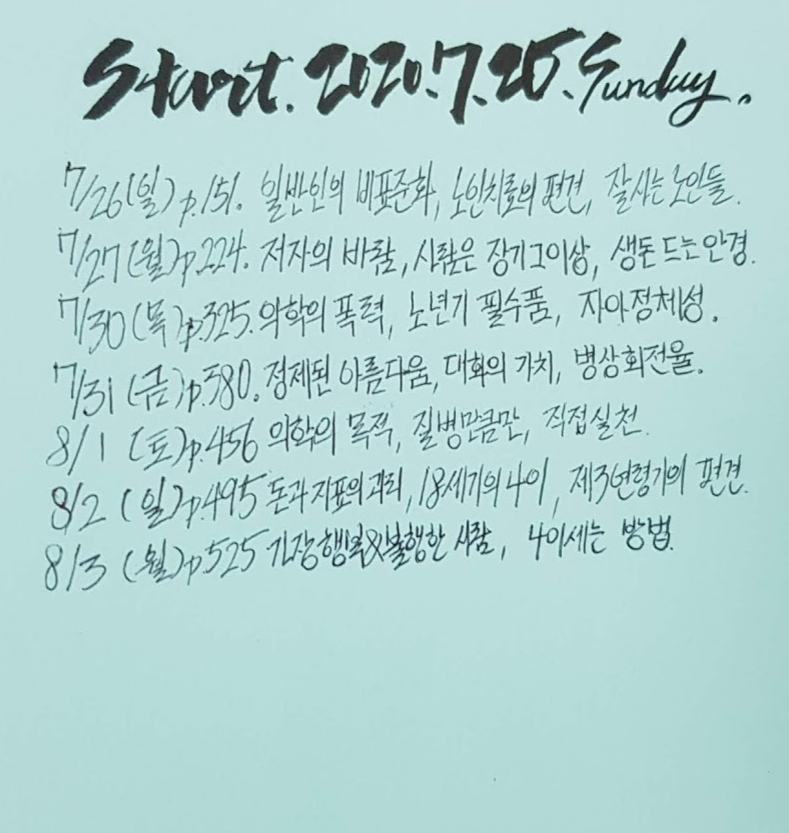 Start. 2020.7.26. Sunday.
7/26 (일) p.151. 일반인의 비표준화, 노인치료의 편견, 잘사는 노인들.
7/27 (월) p.224. 저자의 바람, 사람은 장기 그 이상, 생돈 드는 안경.
7/30 (목) p.325. 의학의 폭력, 노년기 필수품, 자아정체성.
7/31 (금) p.380. 정제된 아름다움, 대화의 가치, 병상회전율.
8/1 (토) p.456 의학의 목적, 질병만큼만, 직접실천.
8/2 (일) p.495 돈과 지표의 괴리, 18세기의 나이, 제3연령기의 편견.
8/3 (월) p.525 가장 행복&불행한 사람, 나이세는 방법.